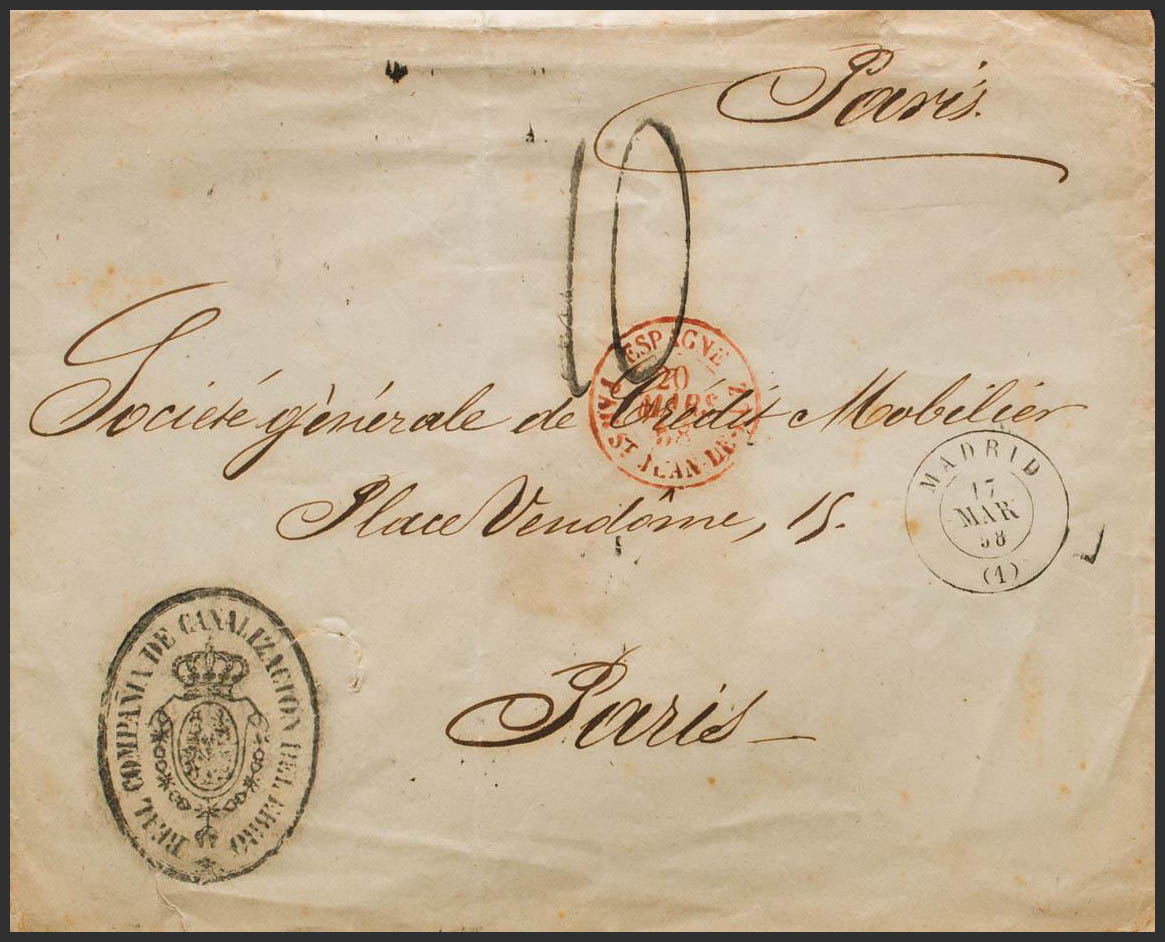 Paris.
10
Société générale de Crédit Mobilier
ESPAGNE
20
MARS
58
ST JEAN-DE-LUZ
MADRID
17
MAR
58
(1)
Place Vendôme, 15.
REAL COMPAÑIA DE CANALIZACION DEL EBRO
Paris